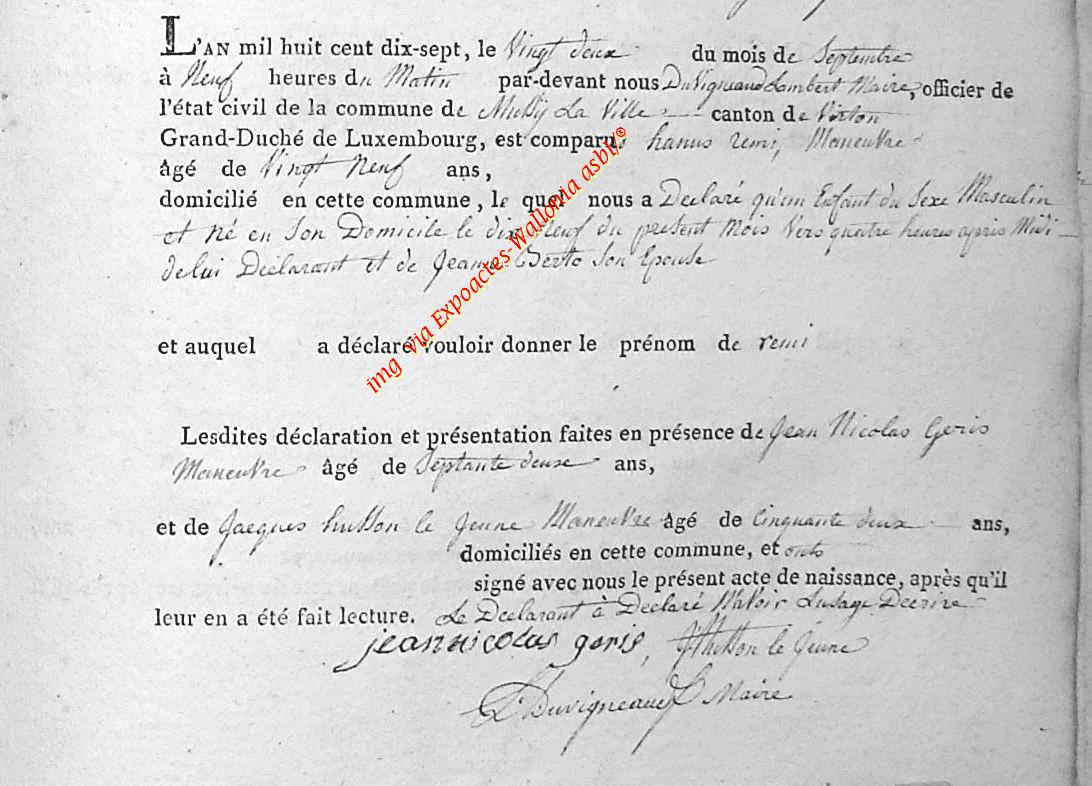 L'AN mil huit cent dix-sept, le Vingt deux du mois de Septembre
à Neuf heures du Matin par-devant nous DuVigneaud Lambert Maire, officier de
l'état civil de la commune de Mussy La Ville canton de Virton
Grand-Duché de Luxembourg, est comparu hanus remi, Maneuvre
âgé de Vingt Neuf ans,
domicilié en cette commune, le quel nous a Declaré qu'un Enfant du Sexe Masculin
et né en Son Domicile le dix Neuf du présent Mois Vers quatre heures apris Midi
de lui Déclarant et de Jeanne Berto Son Epouse
et auquel a déclaré vouloir donner le prénom de remi
Lesdites déclaration et présentation faites en présence de Jean Nicolas Goris
Maneuvre âgé de Septante deuxe ans,
et de Jacques husson le Jeune Maneuvre âgé de Cinquante deux ans,
domiciliés en cette commune, et onts
signé avec nous le présent acte de naissance, après qu'il
leur en a été fait lecture. Le Declarant à Declaré N'avoir Lusage Decrire
jean nicolas goris, JHusson le Jeune
L Duvigneaud Maire
img via Expoactes-Wallonia asbl/®